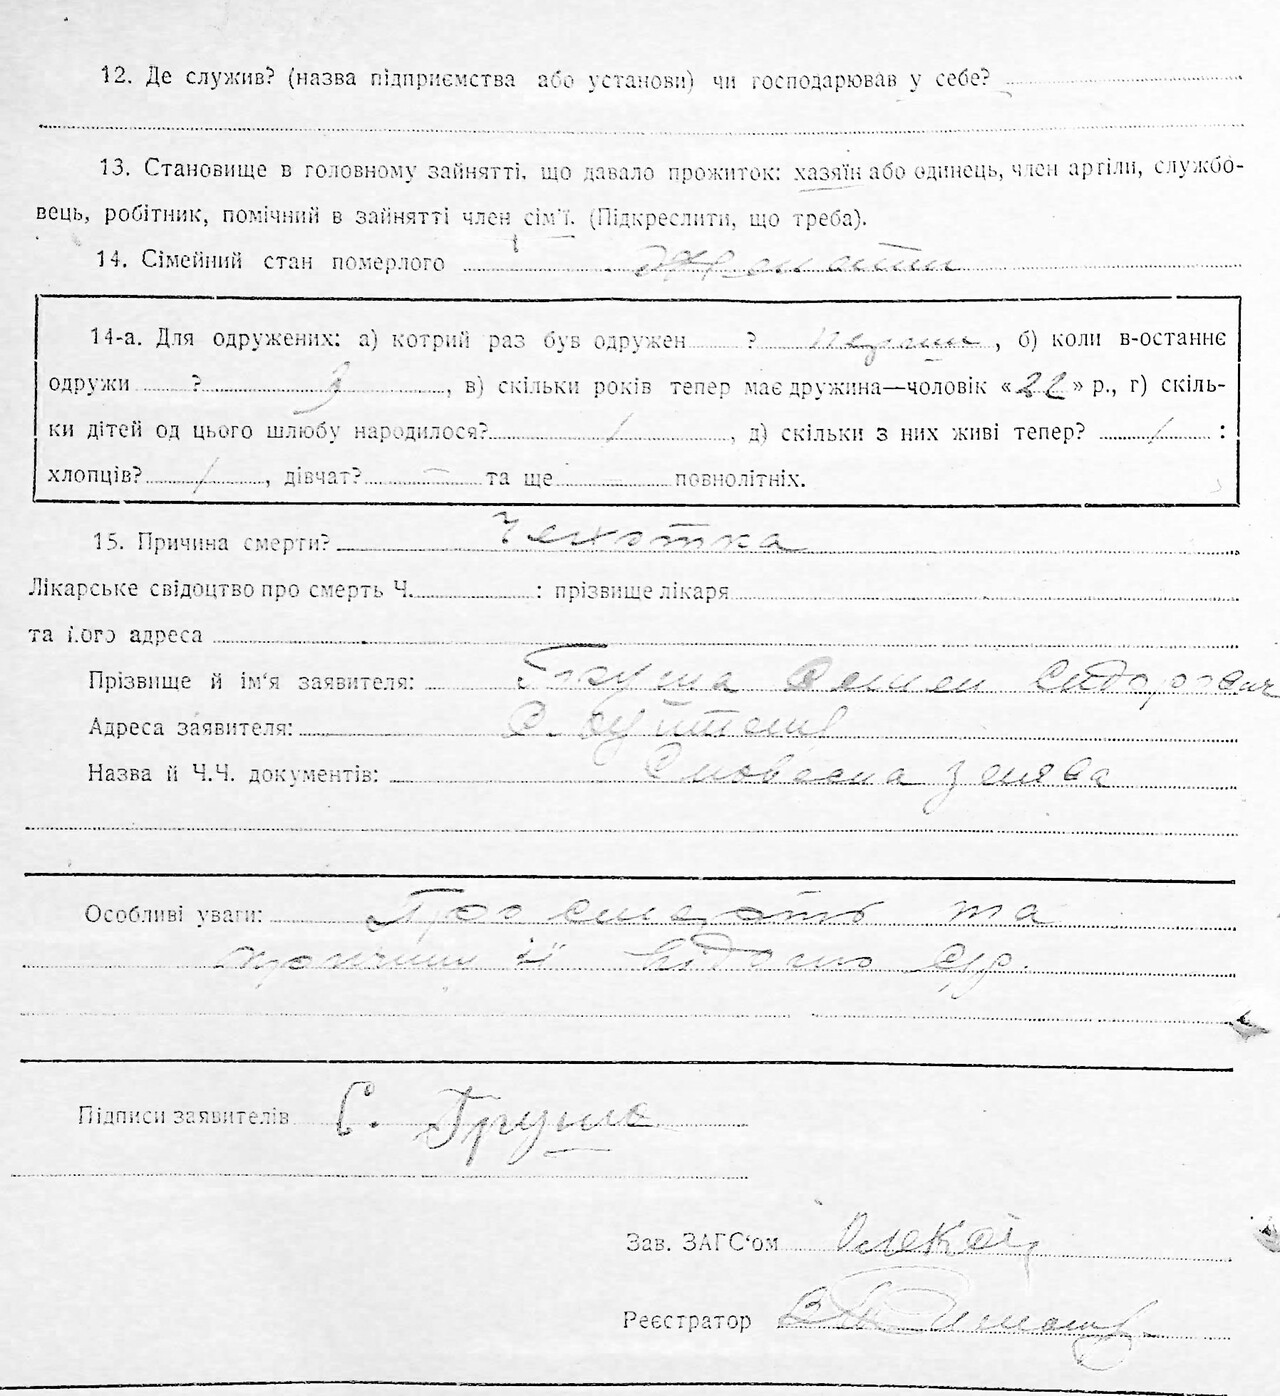 12. Де служив? (назва підприємства або установи) чи господарював у себе?
13. Становище в головному зайнятті, що давало прожиток: хазяїн або одинець, член артілі, службо-
вець, робітник, помічний в зайнятті член сім'ї. (Підкреслити, що треба).
14. Сімейний стан померлого
14-а. Для одружених: а) котрий раз був одружен ? Перший, б) коли в-останнє
одружи ? 3, в) скільки років тепер має дружина—чоловік «22» р., г) скіль-
ки дітей од цього шлюбу народилося? 1, д) скільки з них живі тепер? 1 :
хлопців? 1, дівчат? — та ще — повнолітніх.
15. Причина смерти? Чехотка
Лікарське свідоцтво про смерть Ч. : прізвище лікаря
та його адреса
Прізвище й ім'я заявителя: Груша Семен Сидорович
Адреса заявителя: С.
Назва й Ч.Ч. документів: Словесна заява
Особливі уваги: Про смерть та
причини її відомо
Підписи заявителів С. Груша
Зав. ЗАГС'ом
Реєстратор